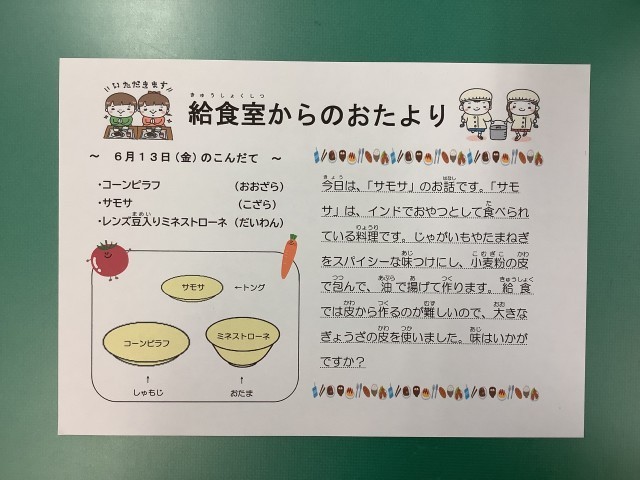 いただきます
給食室からのおたより
～ 6月13日（金）のこんだて ～
・コーンピラフ （おおざら）
・サモサ （こざら）
・レンズ豆入りミネストローネ （だいわん）
サモサ ←トング
コーンピラフ ミネストローネ
↑ ↑
しゃもじ おたま
今日は、「サモサ」のお話です。「サモ
サ」は、インドでおやつとして食べられ
ている料理です。じゃがいもやたまねぎ
をスパイシーな味つけにし、小麦粉の皮
で包んで、油で揚げて作ります。給食
では皮から作るのが難しいので、大きな
ぎょうざの皮を使いました。味はいかが
ですか？